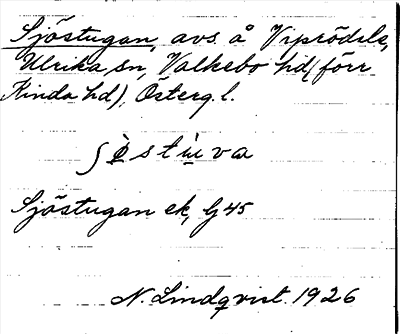 Sjöstugan, avs. å Viprödsle,
Ulrika sn, Valkebo hd (förr
Kinda hd), Österg. l.
Sjöstugan ek, Gj 45
N. Lindqvist. 1926